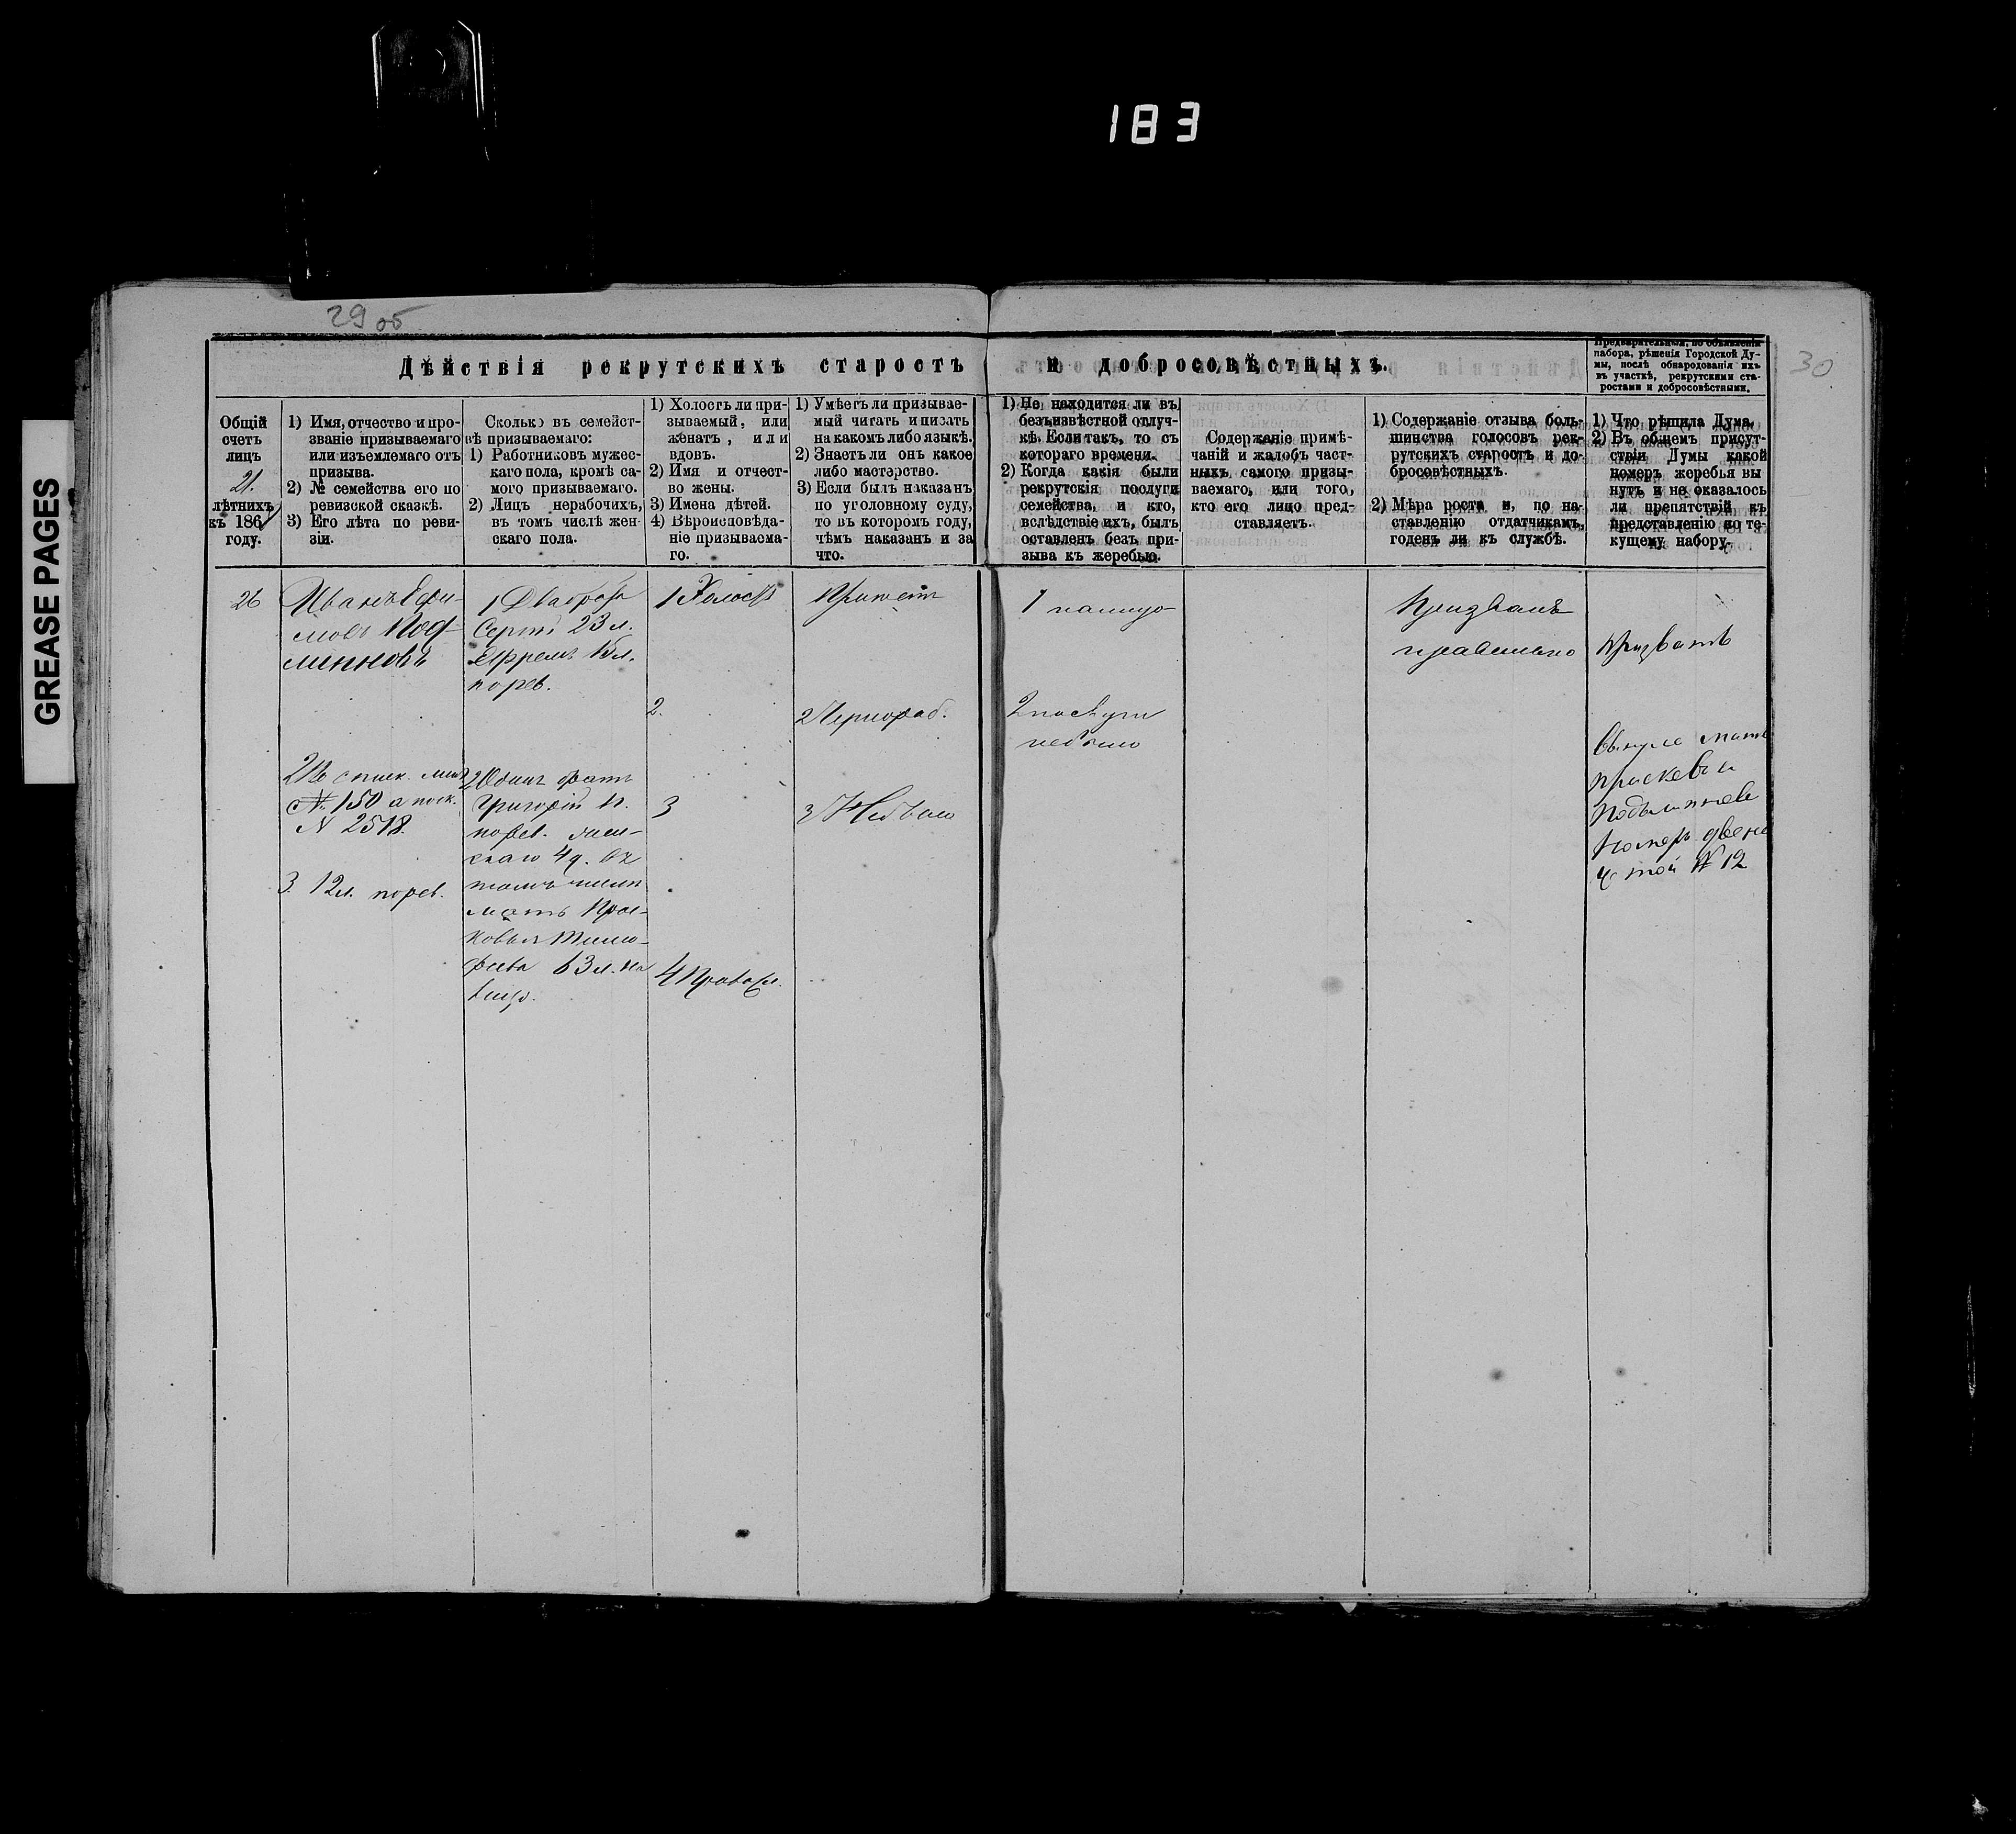 183
GREASE PAGES
29 об
30
Дѣйствія рекрутскихъ старостъ и добросовѣстныхъ.
Предварительныя, по объявленіи
набора, рѣшенія Городской Ду-
мы, послѣ обнародованія ихъ
въ участкѣ, рекрутскими ста-
ростами и добросовѣстными.
Общій
счетъ
лицъ
21.
лѣтнихъ
къ 186
году.
1) Имя, отчество и про-
званіе призываемаго
или изъемлемаго отъ
призыва.
2) № семейства его по
ревизской сказкѣ.
3) Его лѣта по реви-
зіи.
Сколько въ семейст-
вѣ призываемаго:
1) Работниковъ мужес-
каго пола, кромѣ са-
мого призываемаго.
2) Лицъ нерабочихъ,
въ томъ числѣ жен-
скаго пола.
1) Холостъ ли при-
зываемый, или
женатъ, или
вдовъ.
2) Имя и отчест-
во жены.
3) Имена дѣтей.
4) Вѣроисповѣда-
ніе призываема-
го.
1) Умѣетъ ли призывае-
мый читать и писать
на какомъ либо языкѣ.
2) Знаетъ ли онъ какое
либо мастерство.
3) Если былъ наказанъ
по уголовному суду,
то въ которомъ году,
чѣмъ наказанъ и за
что.
1) Не находится ли въ
безъизвѣстной отлуч-
кѣ. Если такъ, то съ
котораго времени.
2) Когда какія были
рекрутскія послуги
семейства, и кто,
вслѣдствіе ихъ, былъ
оставленъ безъ при-
зыва къ жеребью.
Содержаніе примѣ-
чаній и жалобъ част-
ныхъ самого призы-
ваемаго, или того,
кто его лицо пред-
ставляетъ.
1) Содержаніе отзыва боль-
шинства голосовъ рек-
рутскихъ старостъ и до-
бросовѣстныхъ.
2) Мѣра роста и, по на-
ставленію отдатчикамъ,
годенъ ли къ службѣ.
1) Что рѣшила Дума.
2) Въ общемъ присут-
ствіи Думы какой
номеръ жеребья вы
нутъ и не оказалось
ли препятствій къ
представленію по те-
кущему набору.
26
Иванъ Ефи-
мовъ Под-
линновъ
2 В списк. мѣщ
№ 150 а поск.
N 2518.
3. 12 л. по рев.
1 Два брата
Сергѣй 23 л.
Ефремъ 15 л.
по рев.
2 Одинъ братъ
Григорій 11.
по рев. жен-
скаго 4 д. въ
томъ числѣ
мать Прас-
ковья Тимо-
феева 63 л. на
лицо.
1 Холостъ
2.
3
4 Правосл.
2 Чернораб.
3 Не было
1 налицо
2 послуги
не было
Призванъ
правильно
Призвать
Вынула мать
Прасковья
Подлиннова
номеръ двена
цатой № 12